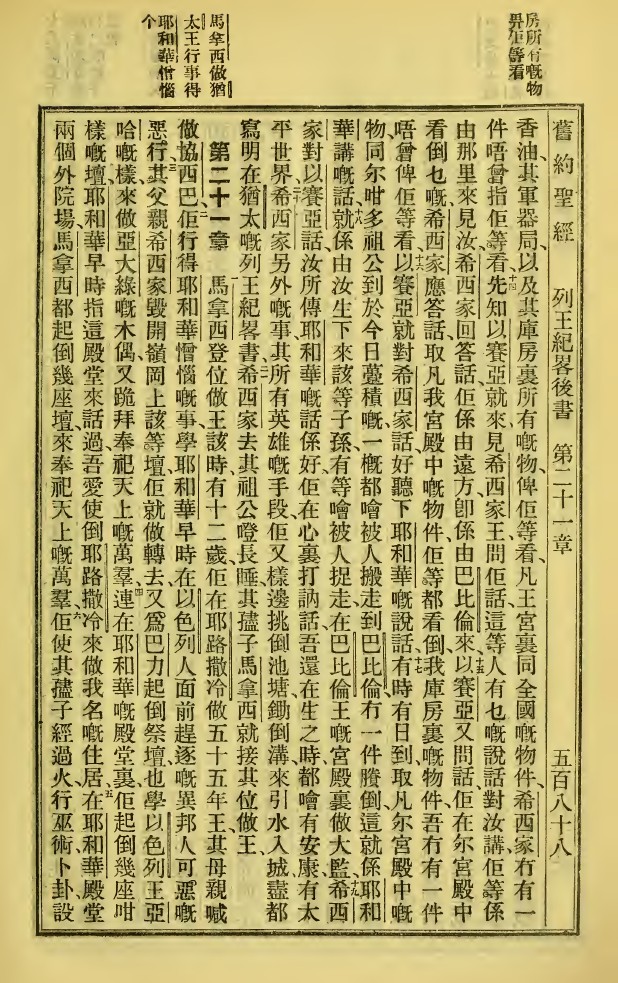 房所冇嘅物
畀佢等看
馬拿西做猶
太王行事得
耶和華憎惱
个
舊約聖經 列王紀畧後書 第二十一章 五百八十八
香油、其軍器局、以及其庫房裏所有嘅物、俾佢等看、凡王宮裏同全國嘅物件、希西家冇有一
件唔曾指佢等看、十四先知以賽亞、就來見希西家王、問佢話、這等人有乜嘅說話對汝講、佢等係
由那里來見汝、希西家回答話、佢係由遠方卽係由巴比倫來、十五以賽亞又問話、佢在尔宮殿中
看倒乜嘅、希西家應答話、取凡我宮殿中嘅物件、佢等都看倒、我庫房裏嘅物件、吾冇有一件
唔曾俾佢等看、十六以賽亞就對希西家話、好聽下耶和華嘅說話、十七有時有日到、取凡尔宮殿中嘅
物、同尔咁多祖公、到於今日薹積嘅、一概都噲被人搬走到巴比倫、冇一件賸倒、這就係耶和
華講嘅話、十八就係由汝生下來該等子孫、有等噲被人捉走、在巴比倫王嘅宮殿裏做大監、十九希西
家對以賽亞話、汝所傳耶和華嘅話係好、佢在心裏打訥話、吾還在生之時、都噲有安康、有太
平世界、二十希西家另外嘅事、其所有英雄嘅手段、佢又樣邊挑倒池塘、鋤倒溝、來引水入城、盡都
寫明在猶太嘅列王紀畧書、希西家去其祖公嶝長睡、其𡥧子馬拿西就接其位做王、
第二十一章 一馬拿西登位做王該時有十二歲、佢在耶路撒冷做五十五年王、其母親喊
做協西巴、二佢行得耶和華憎惱嘅事、學耶和華早時在以色列人面前趕逐嘅異邦人可惡嘅
惡行、三其父親希西家毀開嶺岡上該等壇、佢就做轉去、又爲巴力起倒祭壇、也學以色列王亞
哈嘅樣、來做亞大綠嘅木偶、又跪拜奉祀天上嘅萬羣、四連在耶和華嘅殿堂裏、佢起倒幾座咁
樣嘅壇、耶和華早時指這殿堂來話過、吾愛使倒耶路撒冷來做我名嘅住居、五在耶和華殿堂
兩個外院場、馬拿西都起倒幾座壇、來奉祀天上嘅萬羣、六佢使其𡥧子經過火、行巫術、卜卦、設